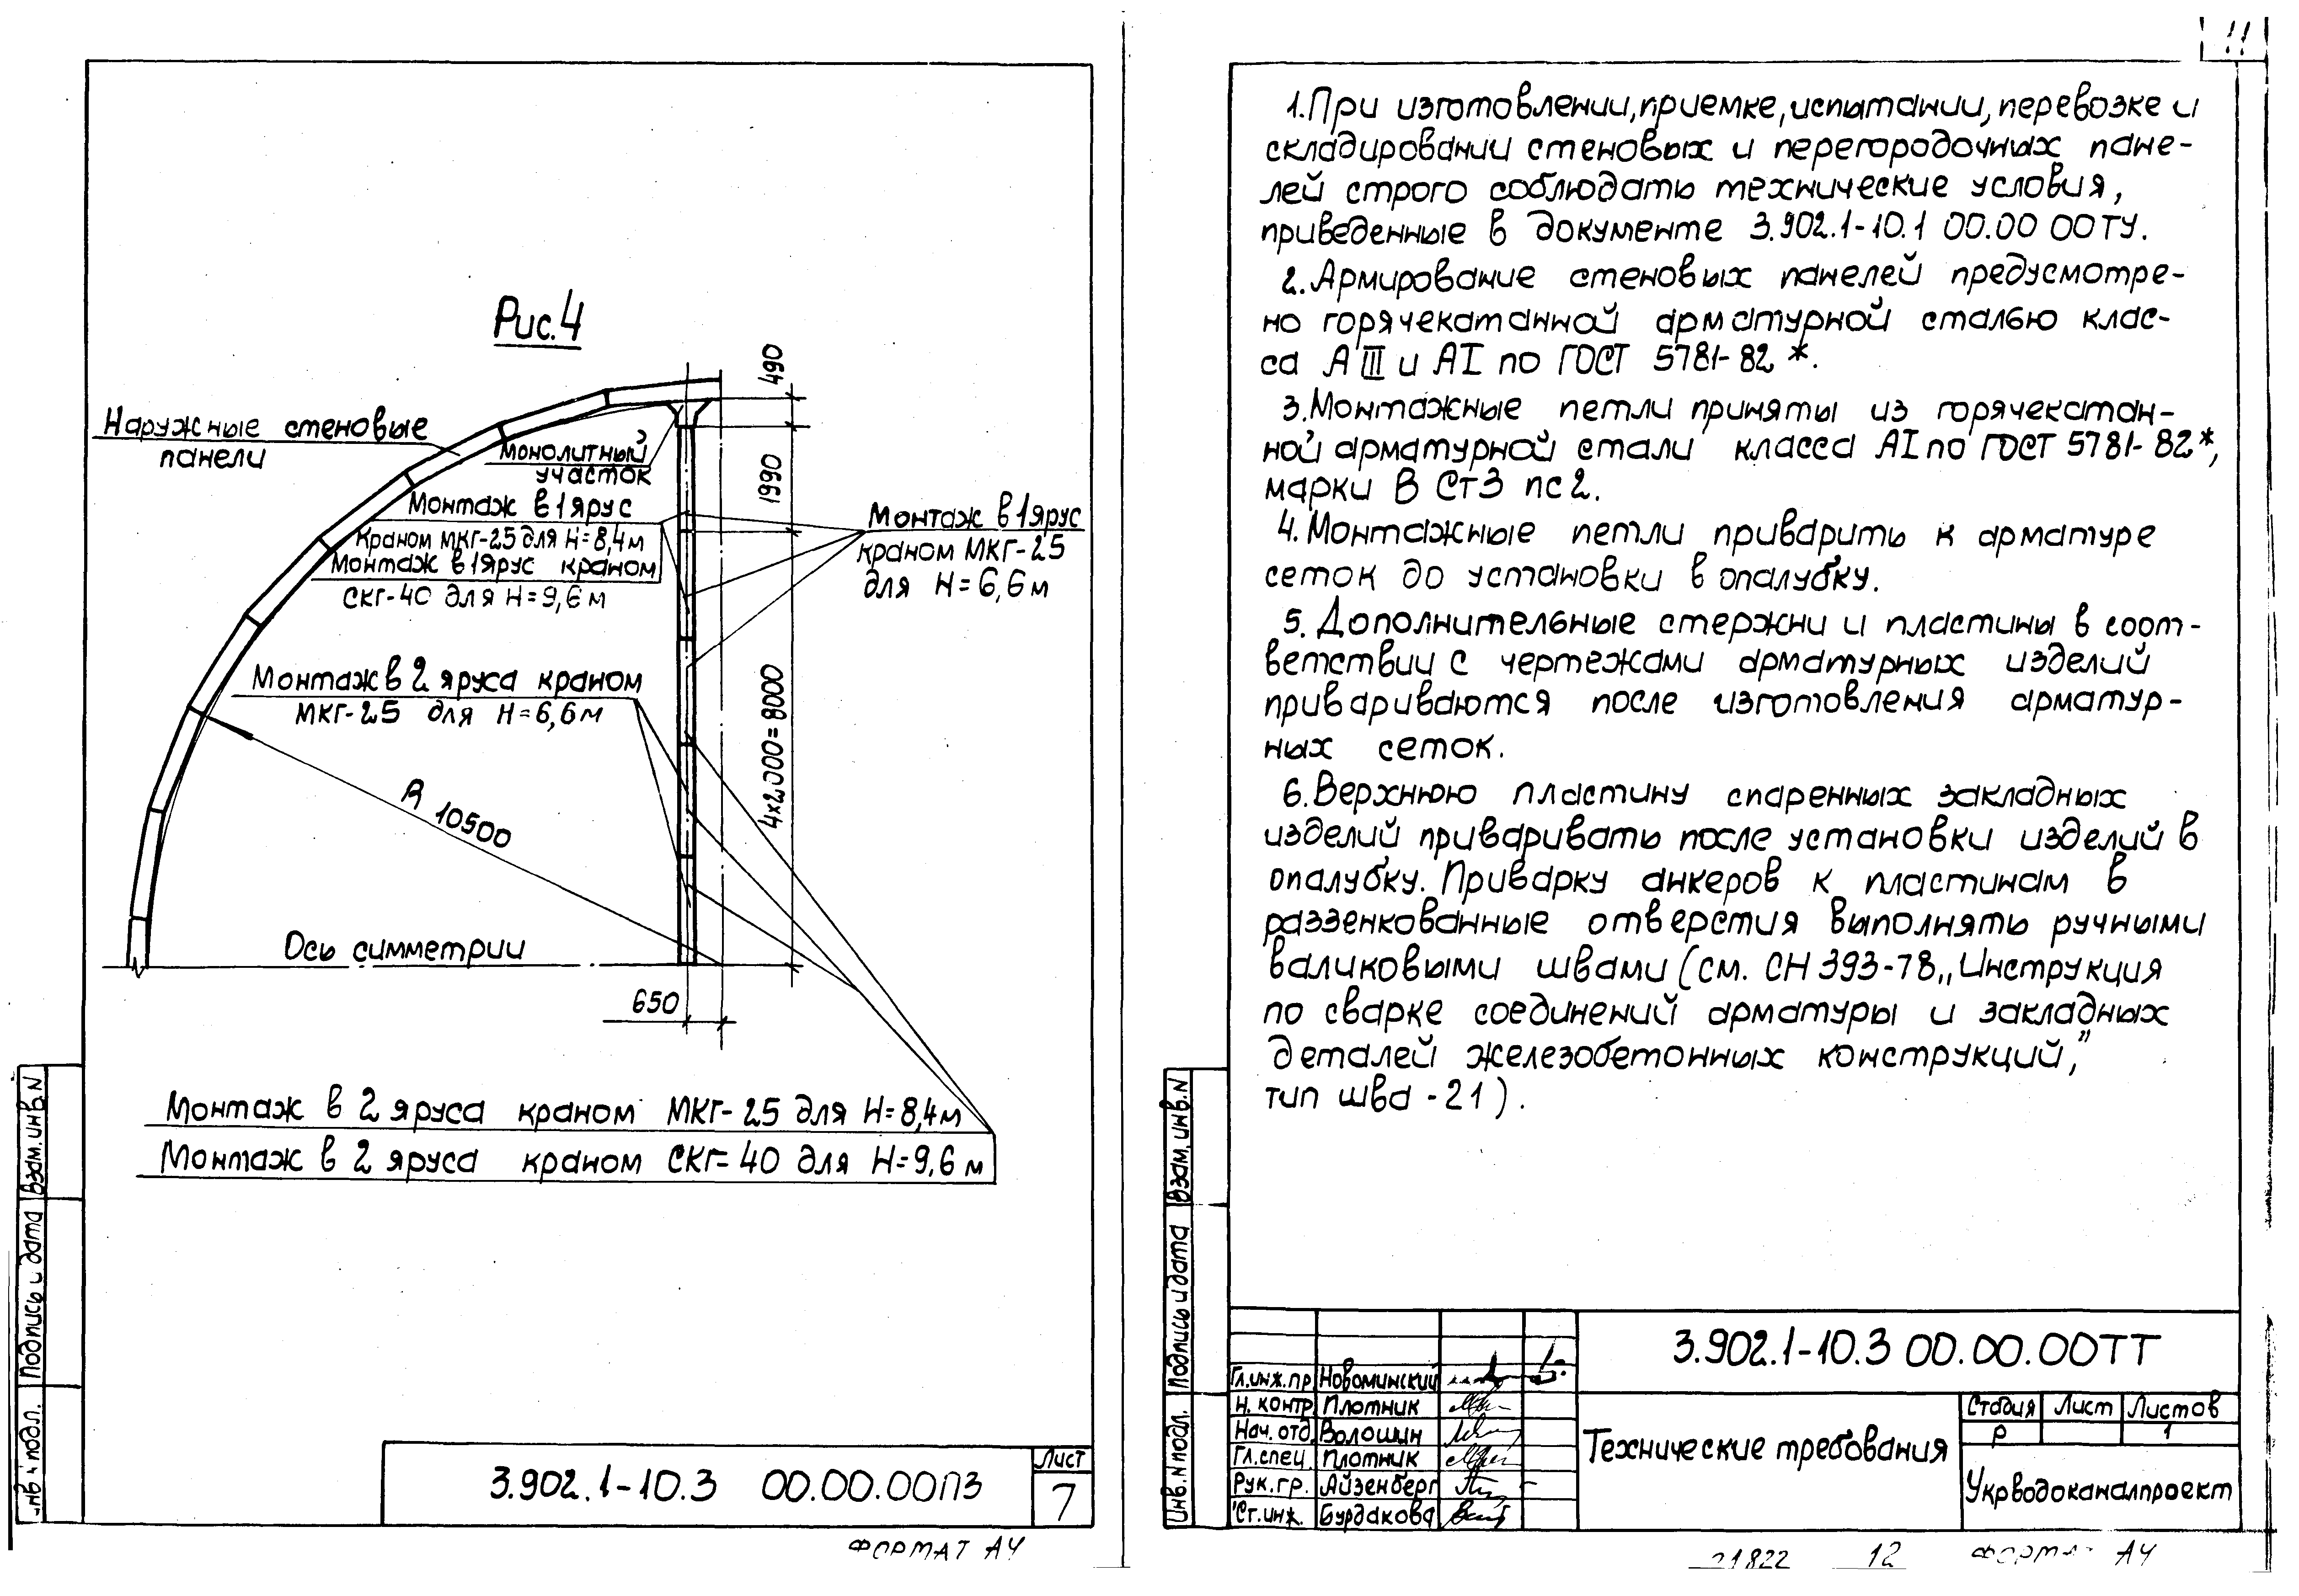 Рис.4
490
Наружные стеновые
панели
Монолитный
участок
1990
Монтаж в 1 ярус
Краном МКГ-25 для Н=8,4м
Монтаж в 1 ярус краном
СКГ-40 для Н=9,6м
Монтаж в 1 ярус
краном МКГ-25
для Н=6,6м
Монтаж в 2 яруса краном
МКГ-25 для Н=6,6м
4х2000=8000
R 10500
Ось симметрии
650
Монтаж в 2 яруса краном МКГ-25 для Н=8,4м
Монтаж в 2 яруса краном СКГ-40 для Н=9,6м
Взам.инв.N
Подпись и дата
Инв.N подл.
3.902.1-10.3 00.00.00ПЗ
Лист
7
ФОРМАТ А4
11
1.При изготовлении,приемке,испытании,перевозке и
складировании стеновых и перегородочных пане-
лей строго соблюдать технические условия,
приведенные в документе 3.902.1-10.1 00.00 00ТУ.
2.Армирование стеновых панелей предусмотре-
но горячекатанной арматурной сталью клас-
са А III и АI по ГОСТ 5781-82*.
3.Монтажные петли приняты из горячекатан-
ной арматурной стали класса АI по ГОСТ 5781-82*,
марки В Ст3 пс2.
4.Монтажные петли приварить к арматуре
сеток до установки в опалубку.
5. Дополнительные стержни и пластины в соот-
ветствии с чертежами арматурных изделий
привариваются после изготовления арматур-
ных сеток.
6.Верхнюю пластину спаренных закладных
изделий приваривать после установки изделий в
опалубку. Приварку анкеров к пластинам в
раззенкованные отверстия выполнять ручными
валиковыми швами (см. СН 393-78 „Инструкция
по сварке соединений арматуры и закладных
деталей железобетонных конструкций,"
тип шва -21).
Взам.инв.N
Подпись и дата
Инв.N подл.
3.902.1-10.3 00.00.00ТТ
Гл.инж.пр Новоминский
Н. контр Плотник
Нач. отд. Волошин
Гл.спец. Плотник
Рук.гр. Айзенберг
Ст.инж. Бурдакова
Технические требования
Стадия Лист Листов
Р 1
Укрводоканалпроект
21822 12 ФОРМАТ А4